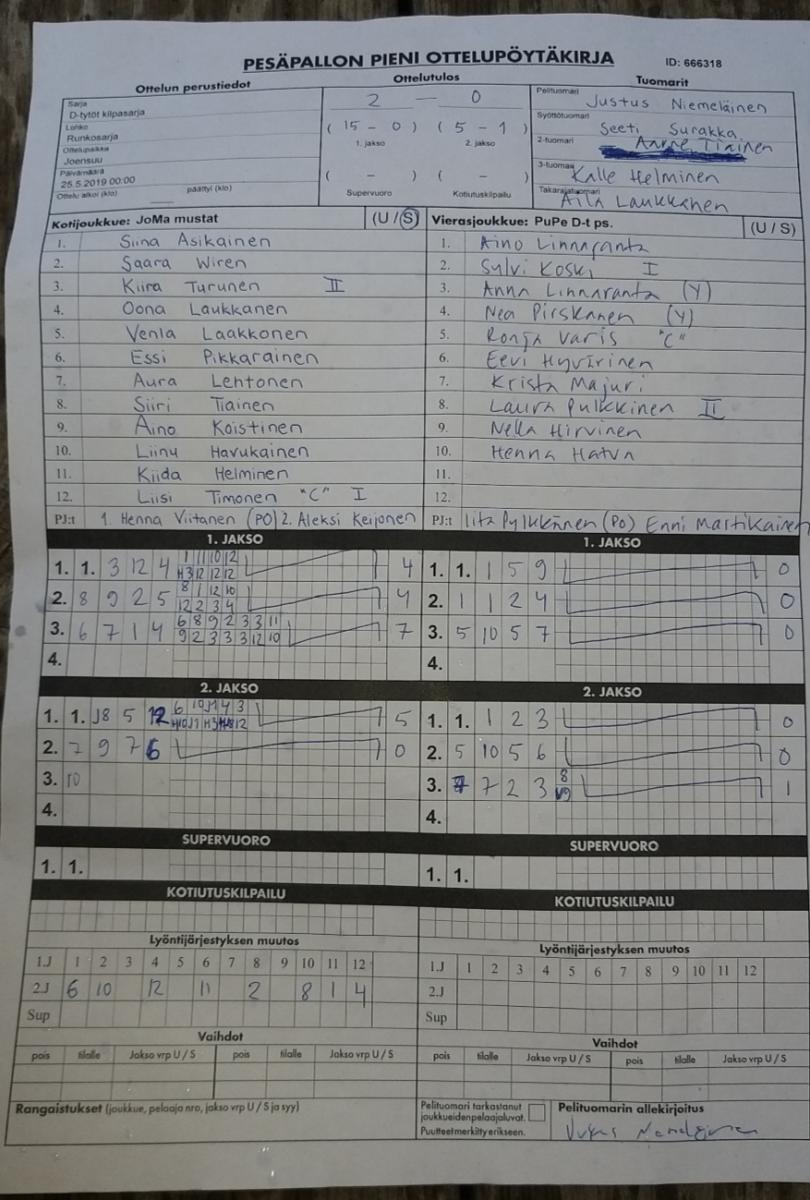 PESÄPALLON PIENI OTTELUPÖYTÄKIRJA
ID: 666318
Ottelun perustiedot
Ottelutulos
Tuomarit
Sarja
D-tytöt kilpasarja
Lohko
Runkosarja
Ottelupaikka
Joensuu
Päivämäärä
25.5.2019 00:00
Ottelu alkoi (klo) päättyi (klo)
2 — 0
( 15 - 0 ) ( 5 - 1 )
1. jakso 2. jakso
( - ) ( - )
Supervuoro Kotiutuskilpailu
Pelituomari
Justus Niemeläinen
Syöttötuomari
Seeti Surakka
2-tuomari
Tiainen
3-tuomari
Kalle Helminen
Takarajatuomari
Aila Laukkanen
Kotijoukkue: JoMa mustat (U / S)
1. Siina Asikainen
2. Saara Wiren
3. Kiira Turunen II
4. Oona Laukkanen
5. Venla Laakkonen
6. Essi Pikkarainen
7. Aura Lehtonen
8. Siiri Tiainen
9. Aino Koistinen
10. Liinu Havukainen
11. Kiida Helminen
12. Liisi Timonen "C" I
PJ:t 1. Henna Viitanen (PO) 2. Aleksi Keijonen
Vierasjoukkue: PuPe D-t ps. (U / S)
1. Aino Linnaranta
2. Sylvi Koski I
3. Anna Linnaranta (Y)
4. Nea Pirskanen (Y)
5. Ronja Varis "C"
6. Eevi Hyvärinen
7. Krista Majuri
8. Laura Pulkkinen II
9. Nella Hirvinen
10. Henna Hatva
11.
12.
PJ:t Iita Pylkkänen (PO) Enni Martikainen
1. JAKSO
1. 1. 3 12 4 4
2. 8 9 2 5 4
3. 6 7 1 4 7
4.
1. JAKSO
1. 1. 1 5 9 0
2. 1 1 2 4 0
3. 5 10 5 7 0
4.
2. JAKSO
1. 1. J8 5 12 5
2. 7 9 7 6 0
3. 10
4.
2. JAKSO
1. 1. 1 2 3 0
2. 5 10 5 6 0
3. 7 2 3 1
4.
SUPERVUORO
1. 1.
SUPERVUORO
1. 1.
KOTIUTUSKILPAILU
KOTIUTUSKILPAILU
Lyöntijärjestyksen muutos
1.J 1 2 3 4 5 6 7 8 9 10 11 12
2.J 6 10 12 11 2 8 1 4
Sup
Lyöntijärjestyksen muutos
1.J 1 2 3 4 5 6 7 8 9 10 11 12
2.J
Sup
Vaihdot
pois tilalle Jakso vrp U / S pois tilalle Jakso vrp U / S
Vaihdot
pois tilalle Jakso vrp U / S pois tilalle Jakso vrp U / S
Rangaistukset (joukkue, pelaaja nro, jakso vrp U / S ja syy)
Pelituomari tarkastanut
joukkueidenpelaajaluvat.
Puutteet merkitty erikseen.
Pelituomarin allekirjoitus